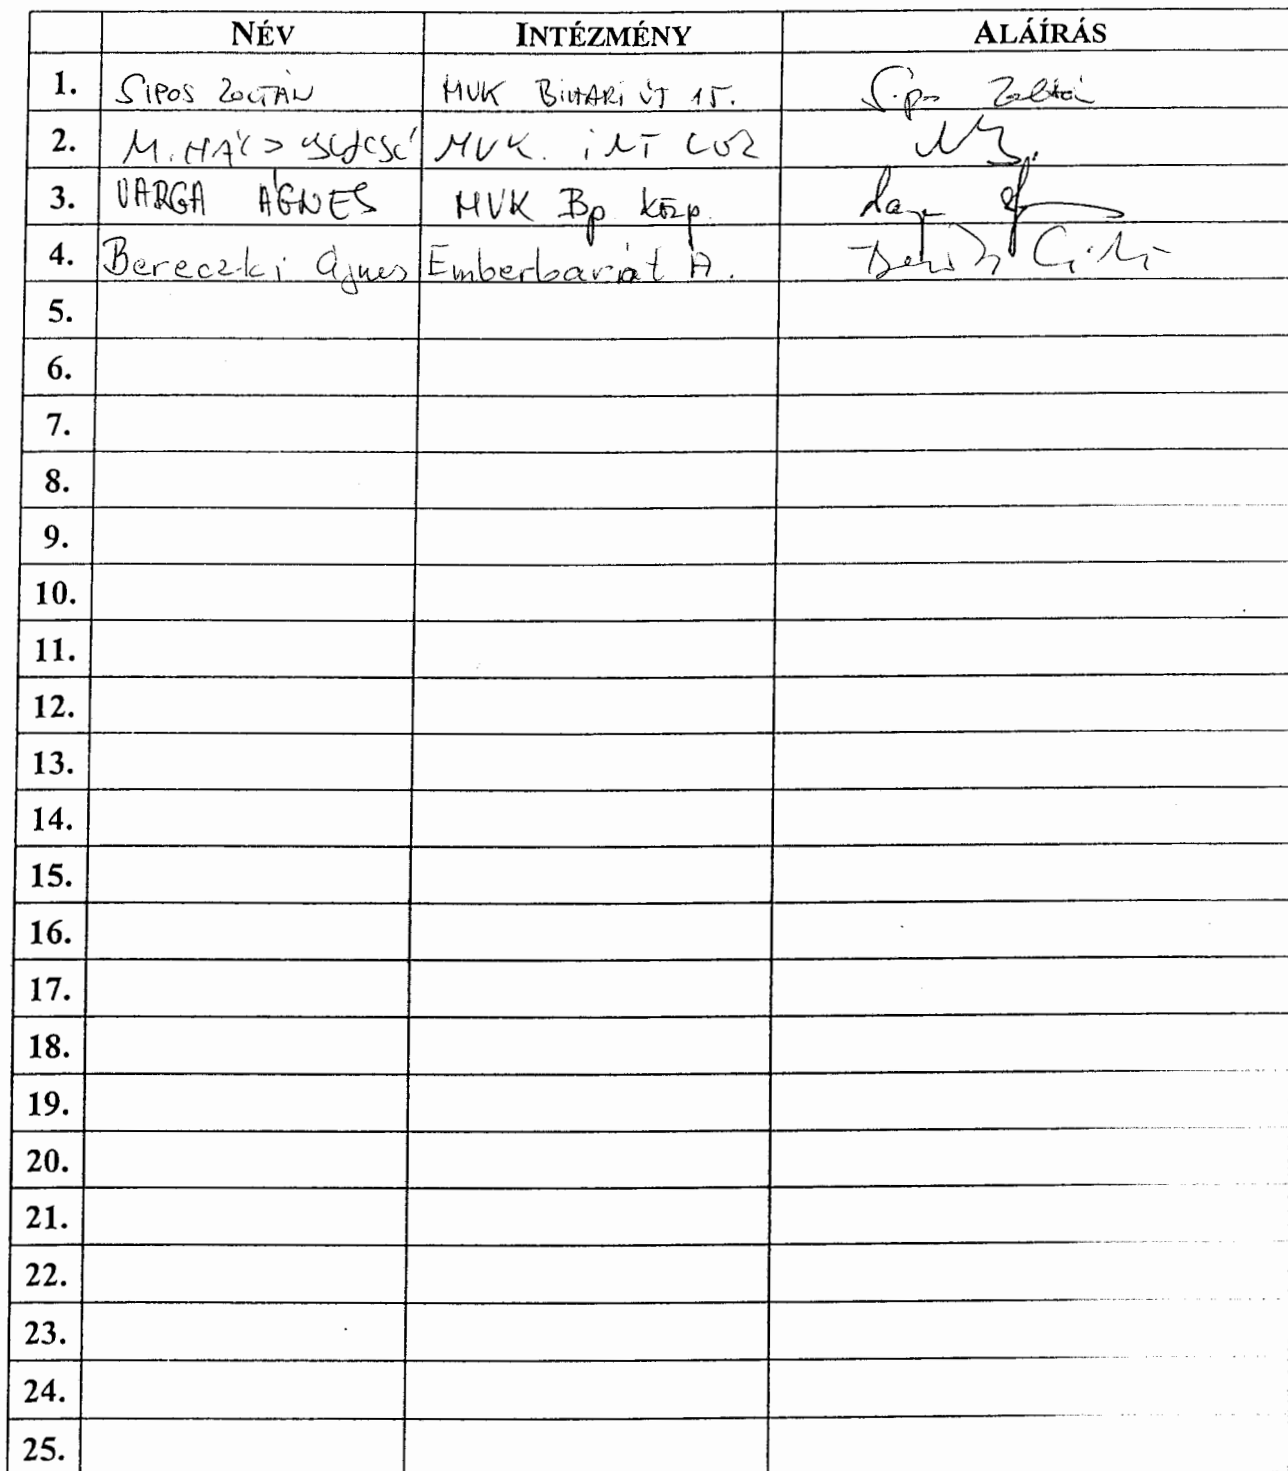 NÉV INTÉZMÉNY ALÁÍRÁS
1. SIPOS ZOLTÁN MVK BIHARI ÚT 15. Sipos Zoltán
2. MVK.
3. VARGA ÁGNES MVK Bp közp.
4. Bereczki Ágnes Emberbarát A.
5.
6.
7.
8.
9.
10.
11.
12.
13.
14.
15.
16.
17.
18.
19.
20.
21.
22.
23.
24.
25.